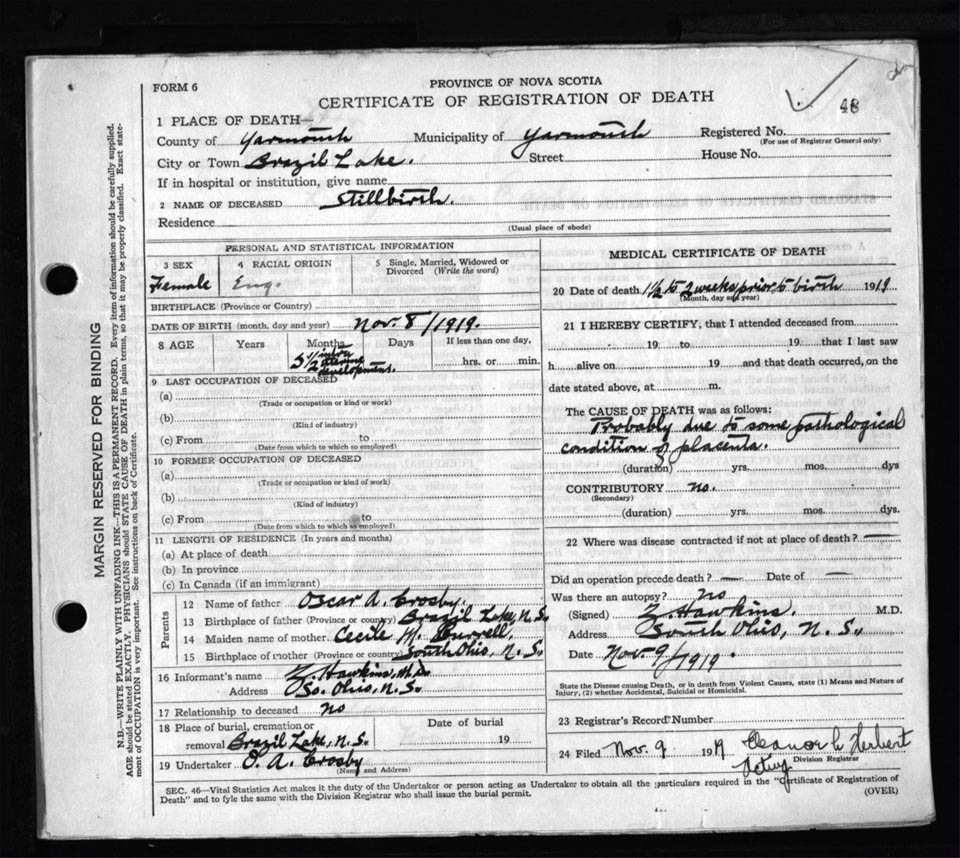 FORM 6
PROVINCE OF NOVA SCOTIA
CERTIFICATE OF REGISTRATION OF DEATH
48
1 PLACE OF DEATH—
County of Yarmouth Municipality of Yarmouth Registered No.
(For use of Registrar General only)
City or Town Brazil Lake. Street House No.
If in hospital or institution, give name
2 NAME OF DECEASED Stillbirth.
Residence
(Usual place of abode)
PERSONAL AND STATISTICAL INFORMATION
3 SEX Female
4 RACIAL ORIGIN Eng.
5 Single, Married, Widowed or Divorced (Write the word)
BIRTHPLACE (Province or Country)
DATE OF BIRTH (month, day and year) Nov. 8/1919.
8 AGE Years Months Days If less than one day,
5 1/2 intra uterine development. hrs. or min.
9 LAST OCCUPATION OF DECEASED
(a)
(Trade or occupation or kind or work)
(b)
(Kind of industry)
(c) From to
(Date from which to which so employed)
10 FORMER OCCUPATION OF DECEASED
(a)
(Trade or occupation or kind or work)
(b)
(Kind of industry)
(c) From to
(Date from which to which so employed)
11 LENGTH OF RESIDENCE (In years and months)
(a) At place of death
(b) In province
(c) In Canada (if an immigrant)
Parents
12 Name of father Oscar A. Crosby.
13 Birthplace of father (Province or country) Brazil Lake, N.S.
14 Maiden name of mother Cecile M. Durrell,
15 Birthplace of mother (Province or country) South Ohio, N.S.
16 Informant's name Z. Hawkins, M.D.
Address So. Ohio, N.S.
17 Relationship to deceased no
18 Place of burial, cremation or removal Brazil Lake, N.S.
Date of burial
19
19 Undertaker O. A. Crosby
(Name and Address)
MEDICAL CERTIFICATE OF DEATH
20 Date of death 1 1/2 to 2 weeks prior to birth 1919
(Month, day and year)
21 I HEREBY CERTIFY, that I attended deceased from
19 to 19 that I last saw
h alive on 19 and that death occurred, on the
date stated above, at m.
The CAUSE OF DEATH was as follows:
Probably due to some pathological
condition of placenta.
(duration) yrs. mos. dys
CONTRIBUTORY no.
(Secondary)
(duration) yrs. mos. dys.
22 Where was disease contracted if not at place of death? —
Did an operation precede death? — Date of —
Was there an autopsy? no
(Signed) Z. Hawkins. M.D.
Address South Ohio, N.S.
Date Nov. 9/1919.
State the Disease causing Death, or in death from Violent Causes, state (1) Means and Nature of
Injury, (2) whether Accidental, Suicidal or Homicidal.
23 Registrar's Record Number
24 Filed Nov. 9 1919 Eleanor C Herbert
Acting Division Registrar
SEC. 46—Vital Statistics Act makes it the duty of the Undertaker or person acting as Undertaker to obtain all the particulars required in the "Certificate of Registration of
Death" and to fyle the same with the Division Registrar who shall issue the burial permit.
(OVER)
MARGIN RESERVED FOR BINDING
N.B.—WRITE PLAINLY WITH UNFADING INK—THIS IS A PERMANENT RECORD. Every item of information should be carefully supplied.
AGE should be stated EXACTLY, PHYSICIANS should STATE CAUSE OF DEATH in plain terms, so that it may be properly classified. Exact state-
ment of OCCUPATION is very important. See instructions on back of Certificate.